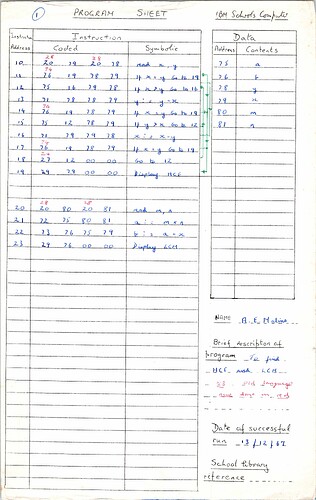 1 PROGRAM SHEET IBM Schools Computer
Instruction Data
Address Coded Symbolic Address Contents
28 28
10 20 79 20 78 read x, y 75 a
74
11 76 19 78 79 If x = y Go to 19 76 b
12 75 16 79 78 78 y
13 71 78 78 79 y : = y - x 79 x
14 76 19 78 79 If x = y Go to 19 80 m
15 75 12 78 79 If y > x Go to 12 81 n
16 71 79 79 78 x : = x - y
17 76 19 78 79 If x = y Go to 19
18 27 12 00 00 Go to 12
19 29 79 00 00 Display HCF
28 28
20 20 80 20 81 read m, n
21 72 75 80 81 a : = m × n
22 73 76 75 79 b : = a ÷ x
23 29 76 00 00 Display LCM
NAME
Brief description of
program To find
HCF and LCM
Date of successful
run 13/12/67
School library
reference